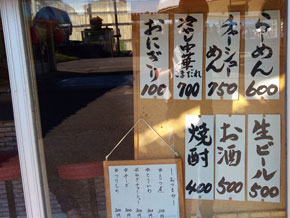 らーめん
600
チャーシューめん
750
冷し中華
ごまだれ
700
おにぎり
100
生ビール
500
お酒
500
焼酎
400